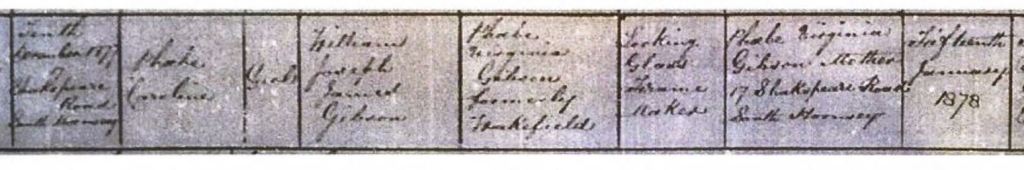 Tenth
November 1877
Shakspeare
Road
South Hornsey
Phœbe
Caroline
Girl
William
Joseph
James
Gibson
Phœbe
Virginia
Gibson
formerly
Wakefield
Looking
Glass
Frame
Maker
Phœbe Virginia
Gibson Mother
17 Shakspeare Road
South Hornsey
Fifteenth
January
1878